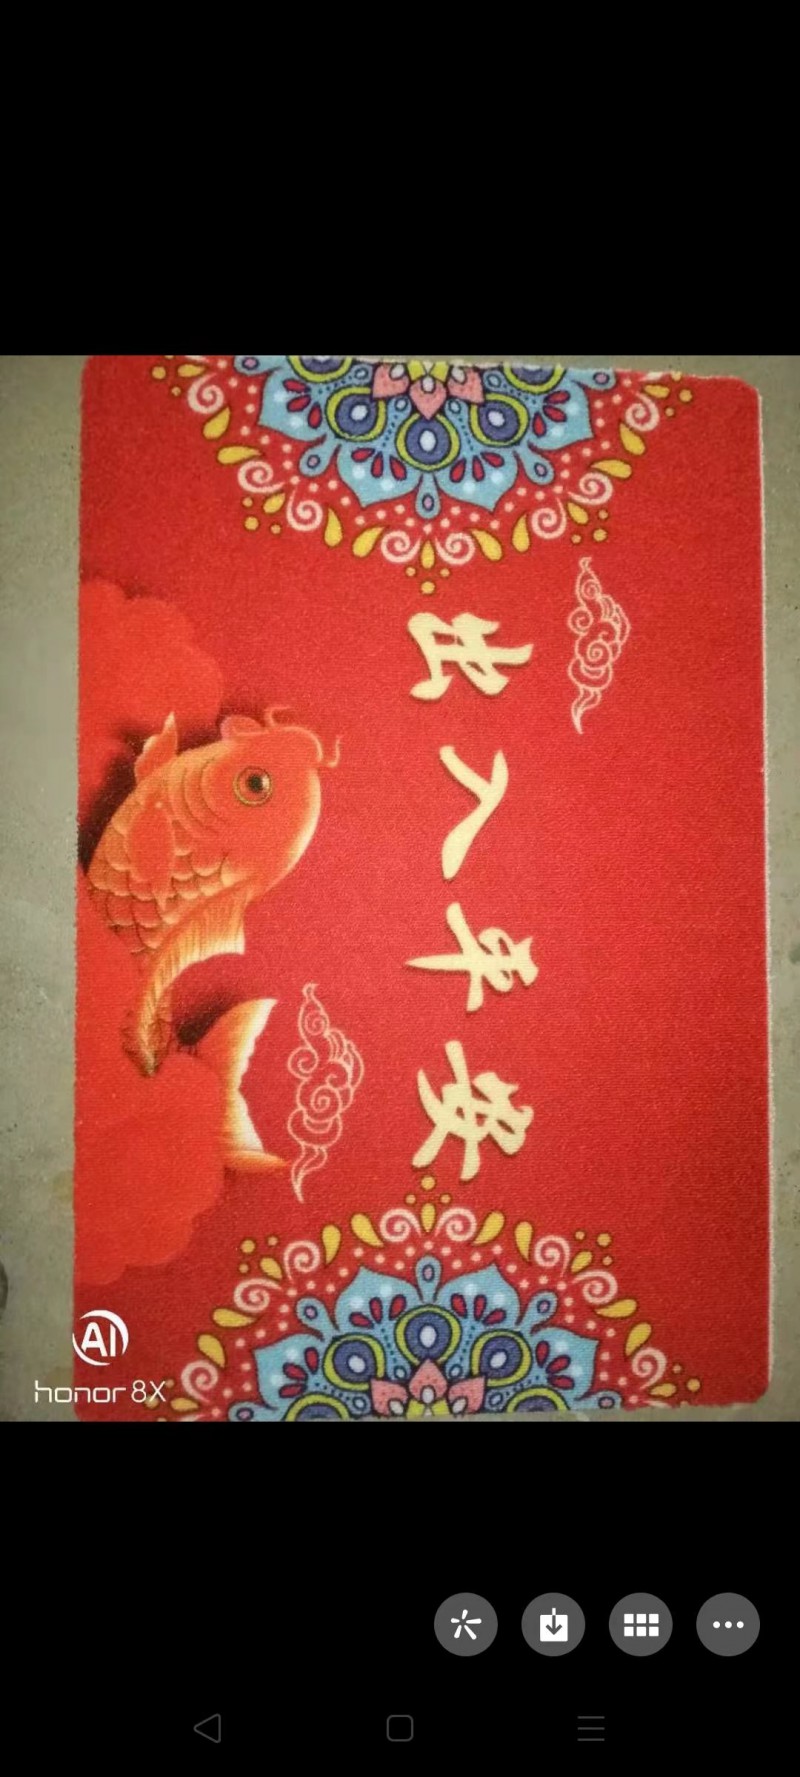 出入平安
AI
honor 8X